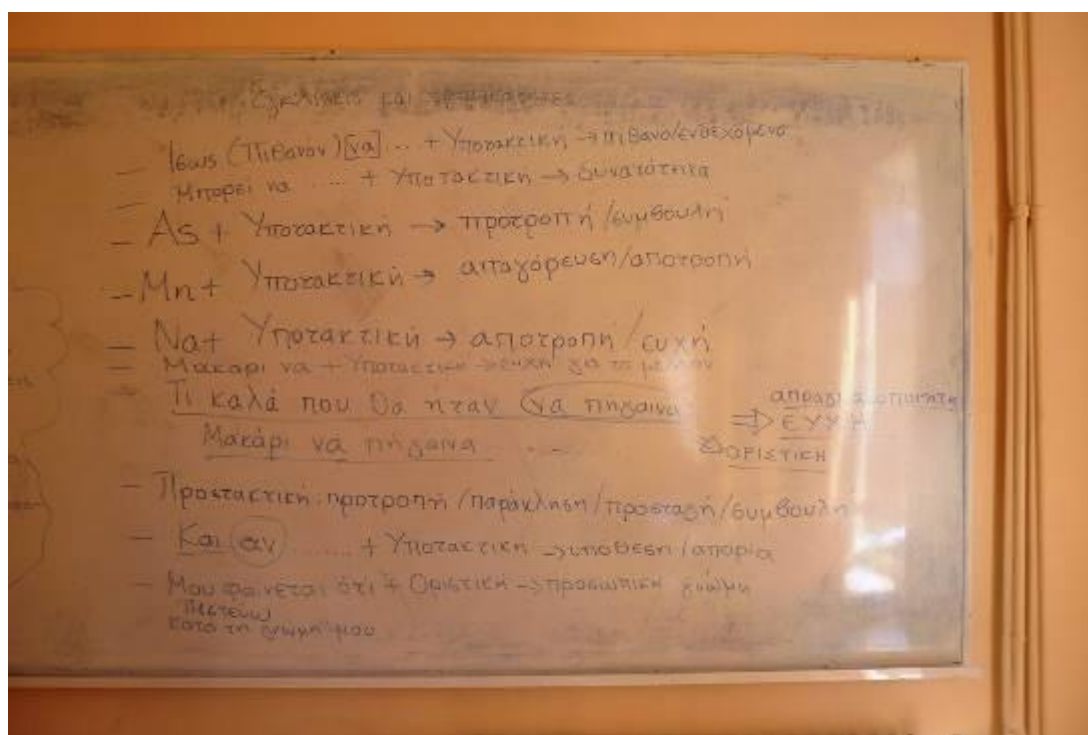 Εγκλίσεις και
— Ίσως (Πιθανόν) [να] ... + Υποτακτική → πιθανό/ενδεχόμενο
— Μπορεί να ..... + Υποτακτική → δυνατότητα
— Ας + Υποτακτική → προτροπή/συμβουλή
— Μη + Υποτακτική → απαγόρευση/αποτροπή
— Να + Υποτακτική → αποτροπή/ευχή
— Μακάρι να + Υποτακτική → ευχή για το μέλλον
Τι καλά που θα ήταν να πήγαινα
απραγματοποίητη
⇒ ΕΥΧΗ
Μακάρι να πήγαινα .....
ΟΡΙΣΤΙΚΗ
— Προστακτική: προτροπή/παράκληση/προσταγή/συμβουλή
— Και αν ....... + Υποτακτική → υπόθεση/απορία
— Μου φαίνεται ότι + Οριστική → προσωπική γνώμη
Πιστεύω
κατά τη γνώμη μου